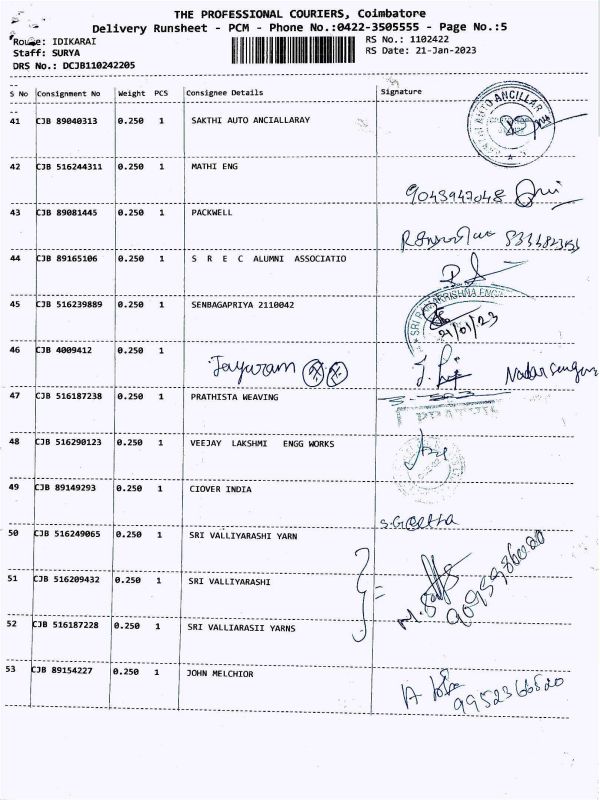 THE PROFESSIONAL COURIERS, Coimbatore
Delivery Runsheet - PCM - Phone No.:0422-3505555 - Page No.:5
Route: IDIKARAI
RS No.: 1102422
Staff: SURYA
RS Date: 21-Jan-2023
DRS No.: DCJB110242205
S No Consignment No Weight PCS Consignee Details Signature
41 CJB 89040313 0.250 1 SAKTHI AUTO ANCIALLARAY
AUTO ANCILLAR
42 CJB 516244311 0.250 1 MATHI ENG
9043947048
43 CJB 89081445 0.250 1 PACKWELL
44 CJB 89165106 0.250 1 S R E C ALUMNI ASSOCIATIO
45 CJB 516239889 0.250 1 SENBAGAPRIYA 2110042
21/01/23
46 CJB 4009412 0.250 1
Jayaram
47 CJB 516187238 0.250 1 PRATHISTA WEAVING
48 CJB 516290123 0.250 1 VEEJAY LAKSHMI ENGG WORKS
49 CJB 89149293 0.250 1 CIOVER INDIA
S.Geetha
50 CJB 516249065 0.250 1 SRI VALLIYARASHI YARN
51 CJB 516209432 0.250 1 SRI VALLIYARASHI
52 CJB 516187228 0.250 1 SRI VALLIARASII YARNS
53 CJB 89154227 0.250 1 JOHN MELCHIOR